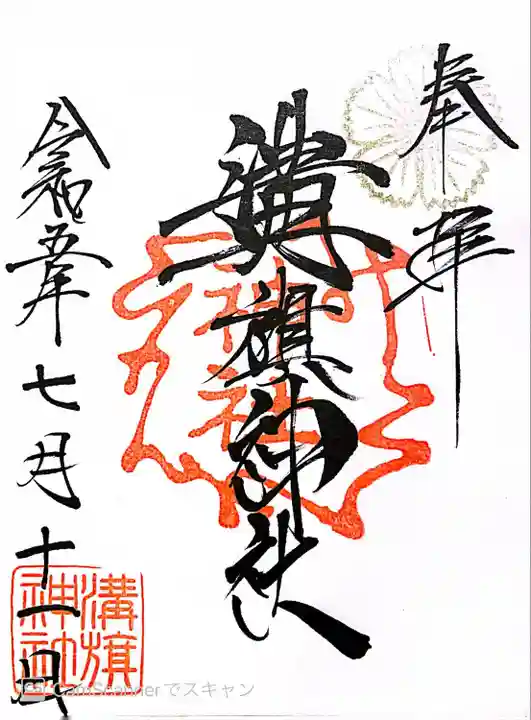 奉拝
溝旗神社
令和五年七月十一日
溝旗
神社
CamScannerでスキャン